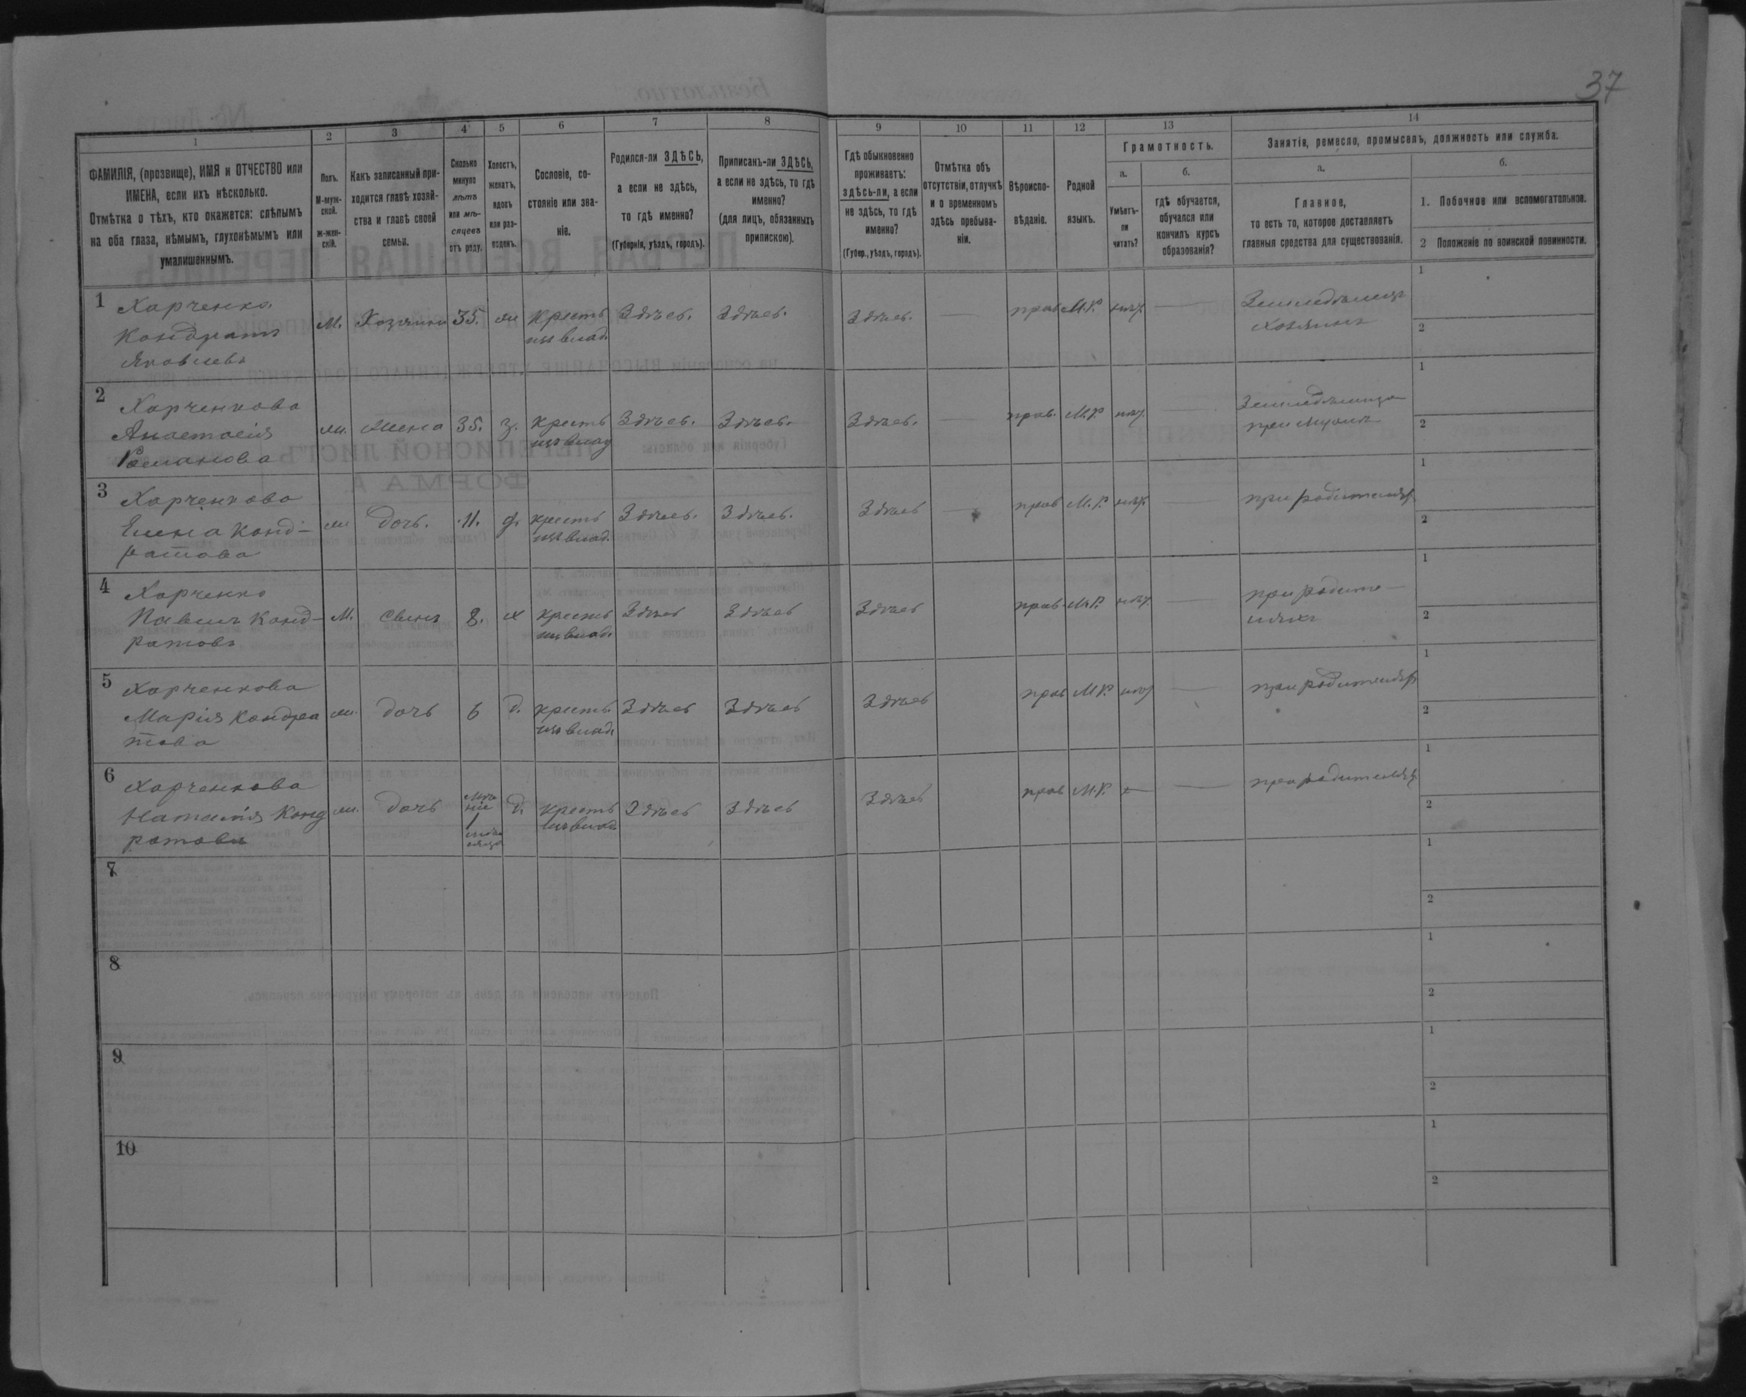 37
1 2 3 4 5 6 7 8 9 10 11 12 13 14
ФАМИЛІЯ, (прозвище), ИМЯ и ОТЧЕСТВО или
ИМЕНА, если ихъ нѣсколько.
Отмѣтка о тѣхъ, кто окажется: слѣпымъ
на оба глаза, нѣмымъ, глухонѣмымъ или
умалишеннымъ.
Полъ.
М-муж-
ской.
Ж-жен-
скій.
Какъ записанный при-
ходится главѣ хозяй-
ства и главѣ своей
семьи.
Сколько
минуло
лѣтъ
или мѣ-
сяцевъ
отъ роду.
Холостъ,
женатъ,
вдовъ
или раз-
веденъ.
Сословіе, со-
стояніе или зва-
ніе.
Родился-ли ЗДѢСЬ,
а если не здѣсь,
то гдѣ именно?
(Губернія, уѣздъ, городъ).
Приписанъ-ли ЗДѢСЬ,
а если не здѣсь, то гдѣ
именно?
(для лицъ, обязанныхъ
припискою).
Гдѣ обыкновенно
проживаетъ:
здѣсь-ли, а если
не здѣсь, то гдѣ
именно?
(Губер., уѣздъ, городъ).
Отмѣтка объ
отсутствіи, отлучкѣ
и о временномъ
здѣсь пребыва-
ніи.
Вѣроиспо-
вѣданіе.
Родной
языкъ.
Грамотность.
а. б.
Умѣетъ-
ли
читать?
гдѣ обучается,
обучался или
кончилъ курсъ
образованія?
Занятія, ремесло, промыселъ, должность или служба.
а. б.
Главное,
то есть то, которое доставляетъ
главныя средства для существованія.
1. Побочное или вспомогательное.
2 Положеніе по воинской повинности.
1 Харченко М. Хозяинъ 35. Крестъ Здѣсь. Здѣсь. Здѣсь. прав М.Р. нѣт. 1
Кондратъ
Яковлевъ 2
2 Харченкова жена 35. з. Крестъ Здѣсь. Здѣсь. Здѣсь. прав. М.Р нѣт. 1
Анастасія при мужѣ
Романова 2
3 Харченкова дочь. 11. крестъ Здѣсь. Здѣсь. Здѣсь прав М.Р. при родителях 1
Елена Конд-
ратова 2
4 Харченко М. сынъ 8. х крестъ Здѣсь Здѣсь Здѣсь прав М.Р. при родите- 1
Павелъ Конд- ляхъ
ратовъ 2
5 Харченкова дочь 6 д. крестъ Здѣсь Здѣсь Здѣсь прав М.Р. при родителях 1
Марія Кондра
това 2
6 Харченкова дочь д. крестъ Здѣсь Здѣсь Здѣсь прав М.Р. при родителях 1
Наталія Конд
ратова 2
7 1
2
8 1
2
9 1
2
10 1
2